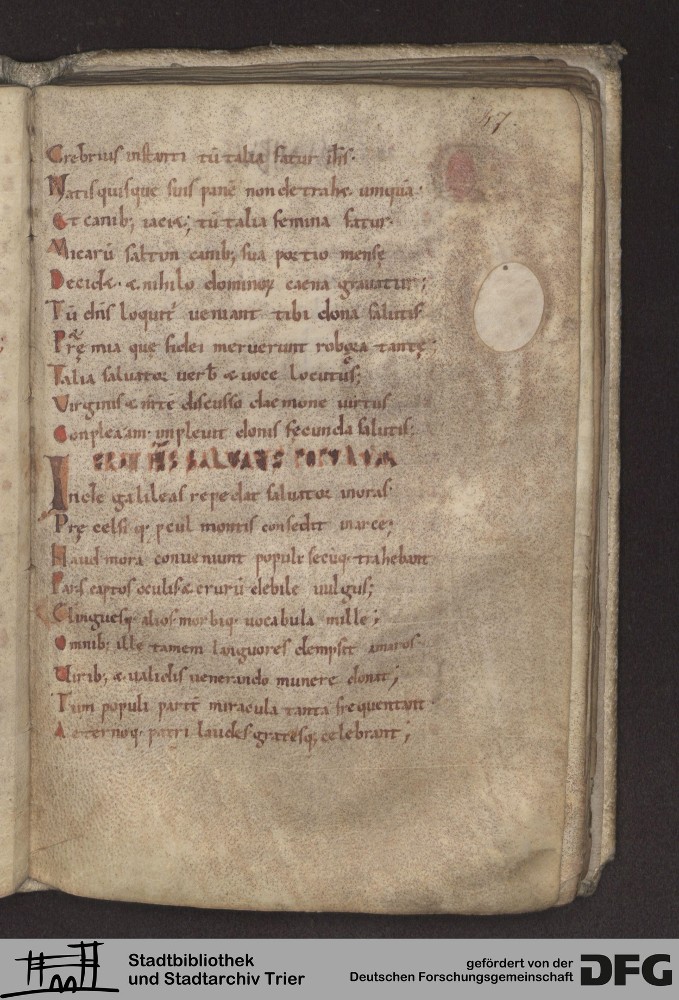 47.
Crebrius instanti tū talia fatur ihs·
Natis quisque suis panē non detrahæ umquā·
Et canib; iaciæ; tū talia femina fatur·
Micarū saltim canib; sua portio mensę
Decidæ· & nihilo dominoꝝ caena grauatur;
Tū dn̄s loquit͛ ueniant tibi dona salutis·
Pręmia que fidei meruerunt robora tantę;
Talia saluator uerb & uoce locutus;
Virginis & discusso daemone uirtus
Conplexam· impleuit donis fecunda salutis;
SALUANS POPULUM
Inde galileas repedat saluator in oras·
Pręcelsi q· ꝓcul montis consedit in arce;
Haud mora conueniunt populi secūq· trahebant
Pars captos oculis & crurū debile uulgus;
Elinguesq· alios morbiq· uocabula mille;
Omnib; ille tamem languores dempsit amaros·
Uirib; & ualidis uenerando munere donat;
Tum populi partē miracula tanta frequentant·
Aeternoq· patri laudes gratesq; celebrant;
Stadtbibliothek
und Stadtarchiv Trier
gefördert von der
Deutschen Forschungsgemeinschaft
DFG